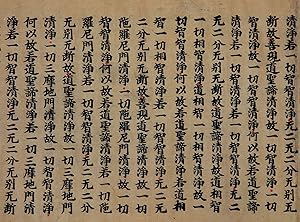 清淨若一切智智清淨无二无二分无別无
斷故善現道聖諦清淨故一切智
智智清淨何以故若道聖諦清淨
清淨若一切智智清淨无二无二分无別无
一切相智清淨道相智一切相智清淨故一
切智智清淨何以故若道聖諦清淨若道相
智一切相智清淨若一切智智清淨无二无
二分无別无斷故善現道聖諦清淨故一切
陁羅尼門清淨一切陁羅尼門清淨故一切
智智清淨何以故若道聖諦清淨若一切陁
羅尼門清淨若一切智智清淨无二无二分
无別无斷故道聖諦清淨故一切三摩地門
清淨一切三摩地門清淨故一切智智清淨
何以故若道聖諦清淨若一切三摩地門清
淨若一切智智清淨无二无二分无別无斷